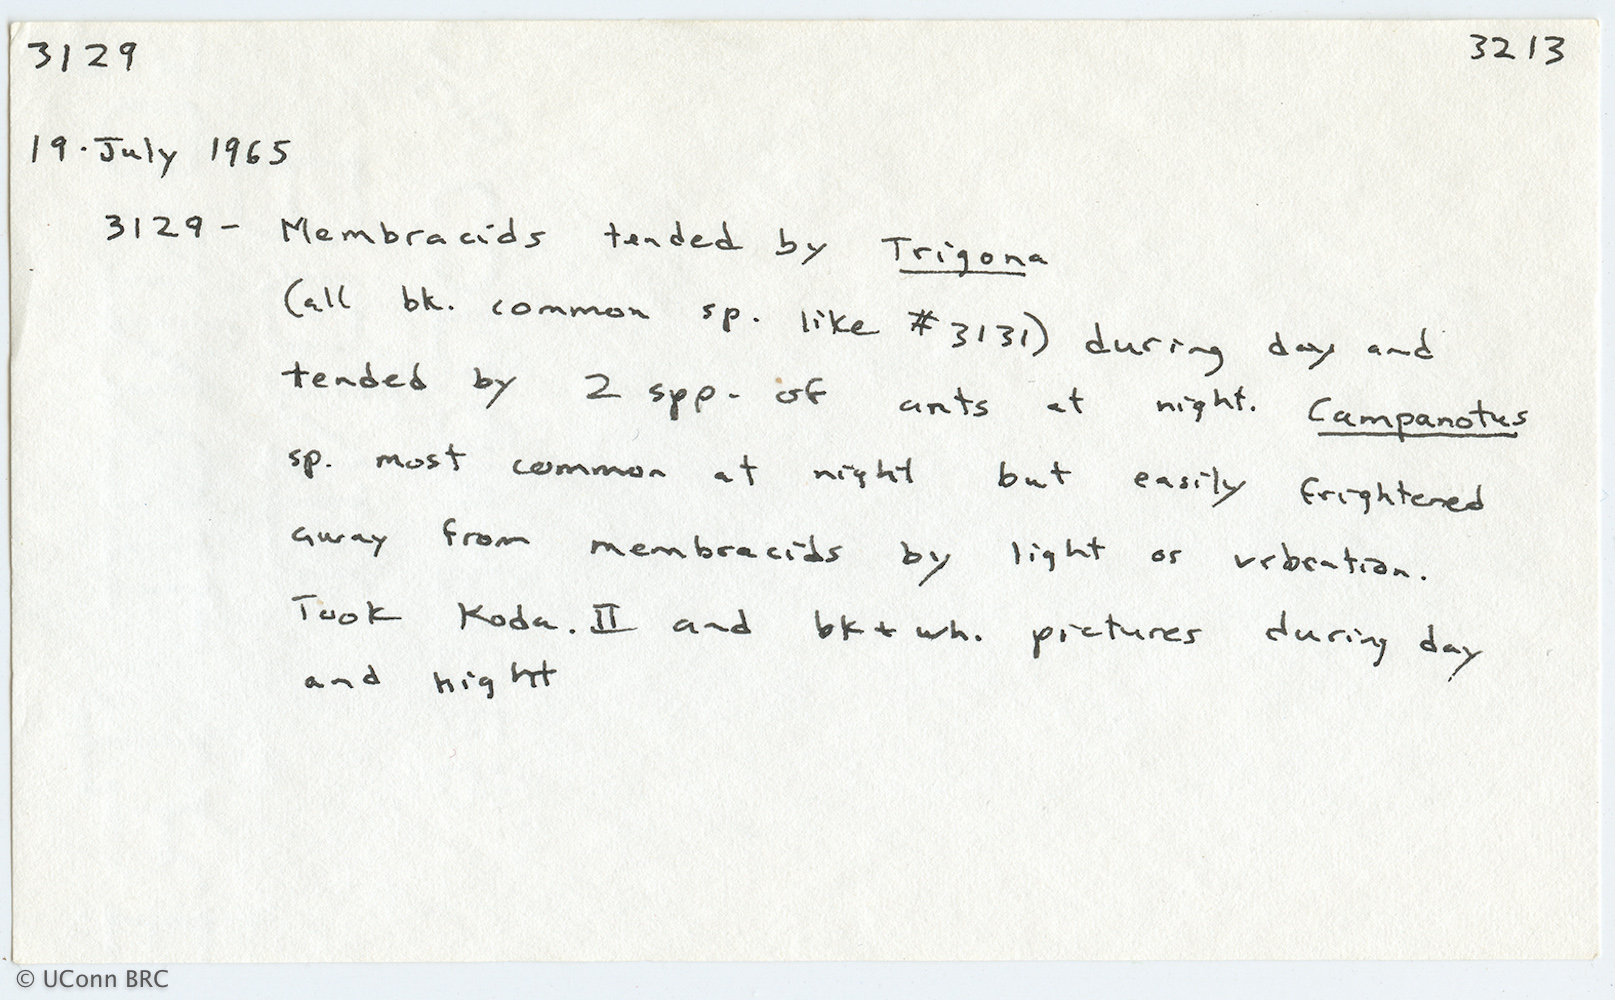 3129 3213
19. July 1965
3129 - Membracids tended by Trigona
(all bk. common sp. like #3131) during day and
tended by 2 spp. of ants at night. Campanotus
sp. most common at night but easily frightened
away from membracids by light or vibration.
Took Koda. II and bk + wh. pictures during day
and night
© UConn BRC